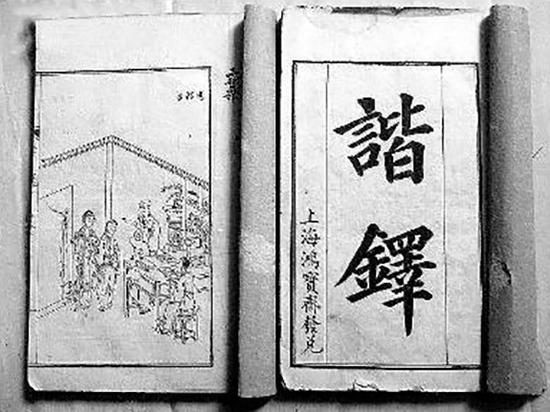 諧
鐸
上海鴻寶齋發兌